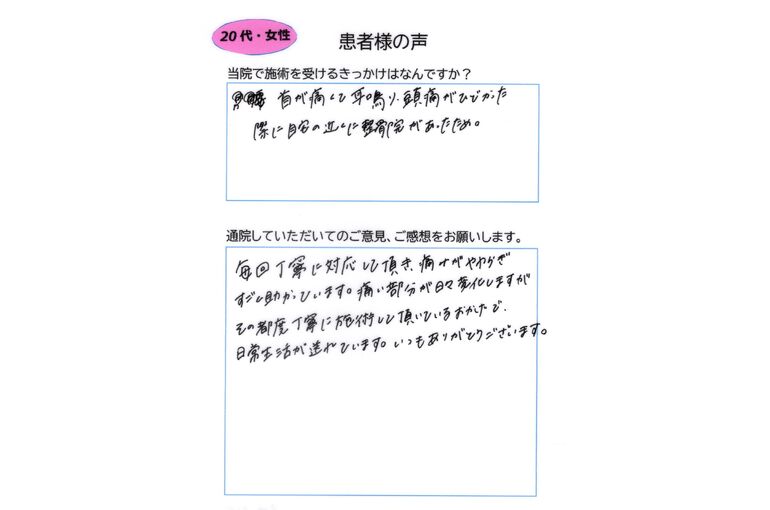 20代・女性
患者様の声
当院で施術を受けるきっかけはなんですか?
首が痛くて耳鳴り、頭痛がひどかった
際に自宅の近くに整骨院があったため。
通院していただいてのご意見、ご感想をお願いします。
毎回丁寧に対応して頂き、痛みがやわらぎ
すごく助かっています。痛い部分が日々変化しますが
その都度丁寧に施術して頂いているおかげで、
日常生活が送れています。いつもありがとうございます。